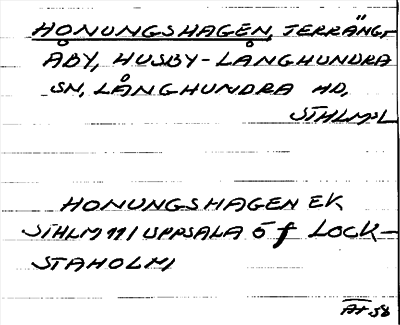 HONUNGSHAGEN, TERRÄNG,
ÅBY, HUSBY-LÅNGHUNDRA
SN, LÅNGHUNDRA HD,
STHLMSL
HONUNGSHAGEN EK
STHLM 111 UPPSALA ö f LOCK-
STAHOLM1